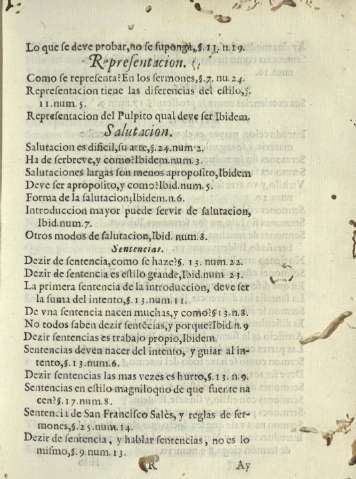 Lo que se deve probar, no se suponga, §. 13. n. 19.
Representacion.
Como se representa? En los sermones, §. 7. nu. 24.
Representacion tiene las diferencias del estilo, §.
11. num. 5.
Representacion del Pulpito qual deve ser Ibidem.
Salutacion.
Salutacion es dificil, su arte, §. 24. num 2.
Ha de ser breve, y como? Ibidem. num. 3.
Salutaciones largas son menos aproposito, Ibidem
Deve ser aproposito, y como? Ibid. num. 5.
Forma de la salutacion, Ibidem. n. 6.
Introduccion mayor puede servir de salutacion,
Ibid. num. 7.
Otros modos de salutacion, Ibid. num. 8.
Sentencias.
Dezir de sentencia, como se haze? §. 13. num. 22.
Dezir de sentencia es estilo grande, Ibid. num 23.
La primera sentencia de la introduccion, deve ser
la suma del intento, §. 13. num. 11.
De vna sentencia nacen muchas, y como? §. 13. n. 8.
No todos saben dezir sentẽcias, y porque? Ibid. n. 9
Dezir sentencias es trabajo propio, Ibidem.
Sentencias deven nacer del intento, y guiar al in-
tento, §. 13. num. 6.
Dezir sentencias las mas vezes es hurto, §. 13. n. 9.
Sentencias en estilo magniloquo de que fuente na
cen? §. 17. num. 8.
Sentencia de San Francisco Sales, y reglas de ser-
mones, §. 25. num. 14.
Dezir de sentencia, y hablar sentencias, no es lo
mismo, §. 9. num. 13.
R Ay